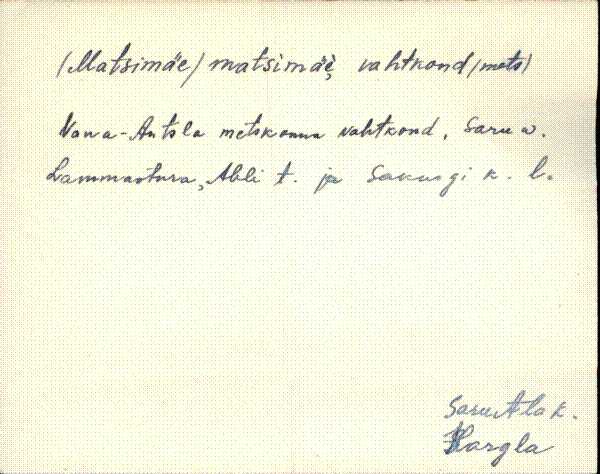 (Matsimäe) matsimäè̦ vahtkond (mets)
Vana-Antsla metskonna vahtkond, Saru w.
Alli t. ja k. l.
Saru Ala k.
Hargla